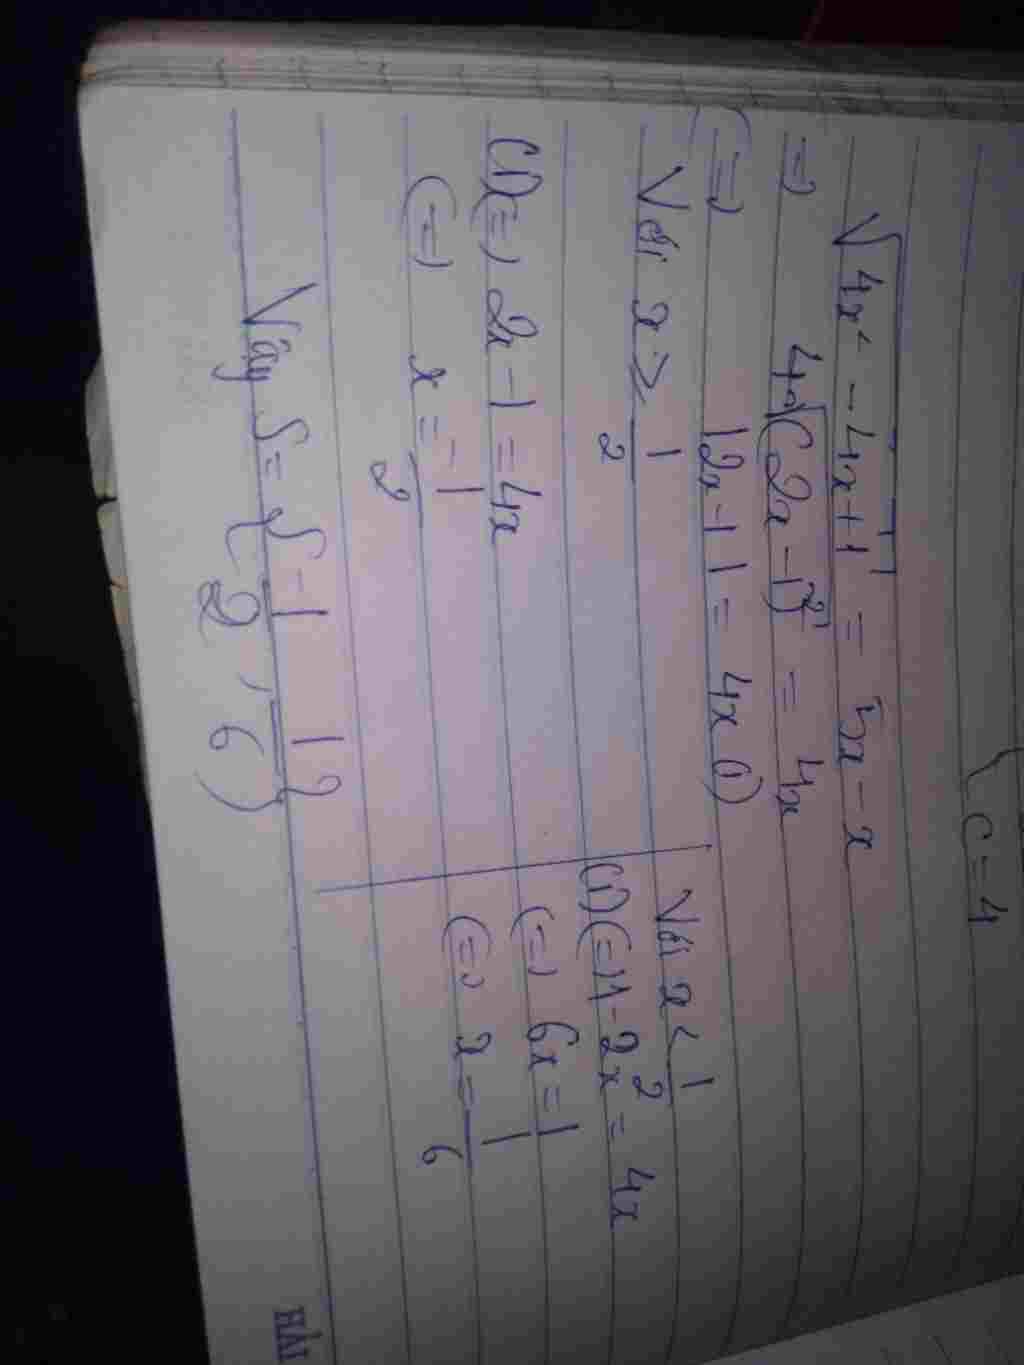 C = 4
√4x² - 4x + 1 = 5x - x
=> √(2x - 1)² = 4x
<=> |2x - 1| = 4x (1)
Với x ≥ 1/2
(1) <=> 2x - 1 = 4x
<=> x = -1/2
Với x < 1/2
(1) <=> 1 - 2x = 4x
<=> 6x = 1
<=> x = 1/6
Vậy S = { -1/2 , 1/6 }
HẢI